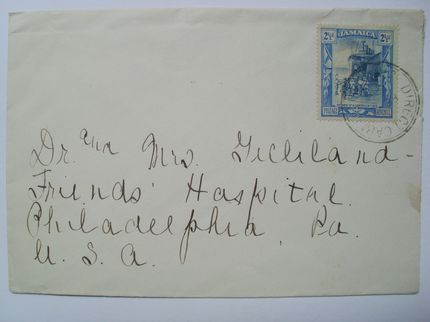 2½d JAMAICA 2½d
DIREC
Dr. and Mrs. Gilliland -
Friends' Hospital.
Philadelphia, Pa.
U. S. A.